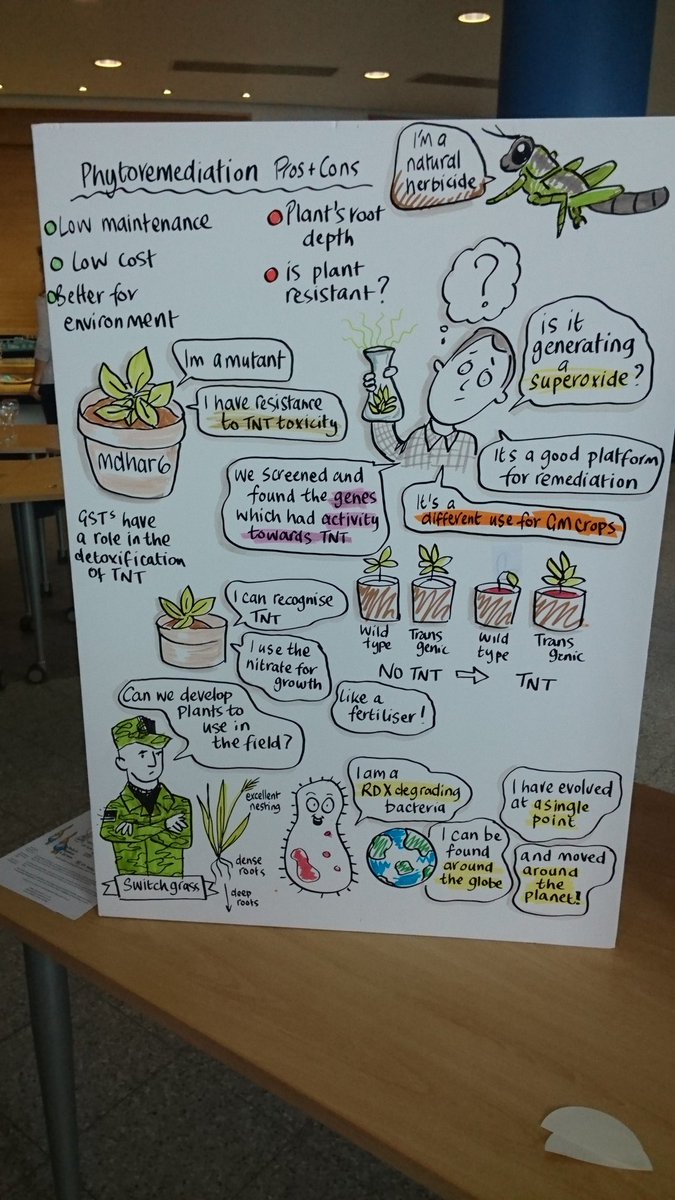 Phytoremediation Pros + Cons
Low maintenance
Low cost
Better for
environment
Plant's root
depth
is plant
resistant?
I'm a
natural
herbicide
?
is it
generating
a
superoxide?
Im a mutant
I have resistance
to TNT toxicity
mdhar6
GSTs have
a role in the
detoxification
of TNT
It's a good platform
for remediation
We screened and
found the genes
which had activity
towards TNT
It's a
different use for GM crops
I can recognise
TNT
I use the
nitrate for
growth
Like a
fertiliser!
Wild
type
Trans
genic
Wild
type
Trans
genic
NO TNT ⇒ TNT
Can we develop
plants to
use in
the field?
Switchgrass
excellent
nesting
dense
roots
deep
roots
I am a
RDX degrading
bacteria
I can be
found
around
the globe
I have evolved
at a single
point
and moved
around
the
planet!